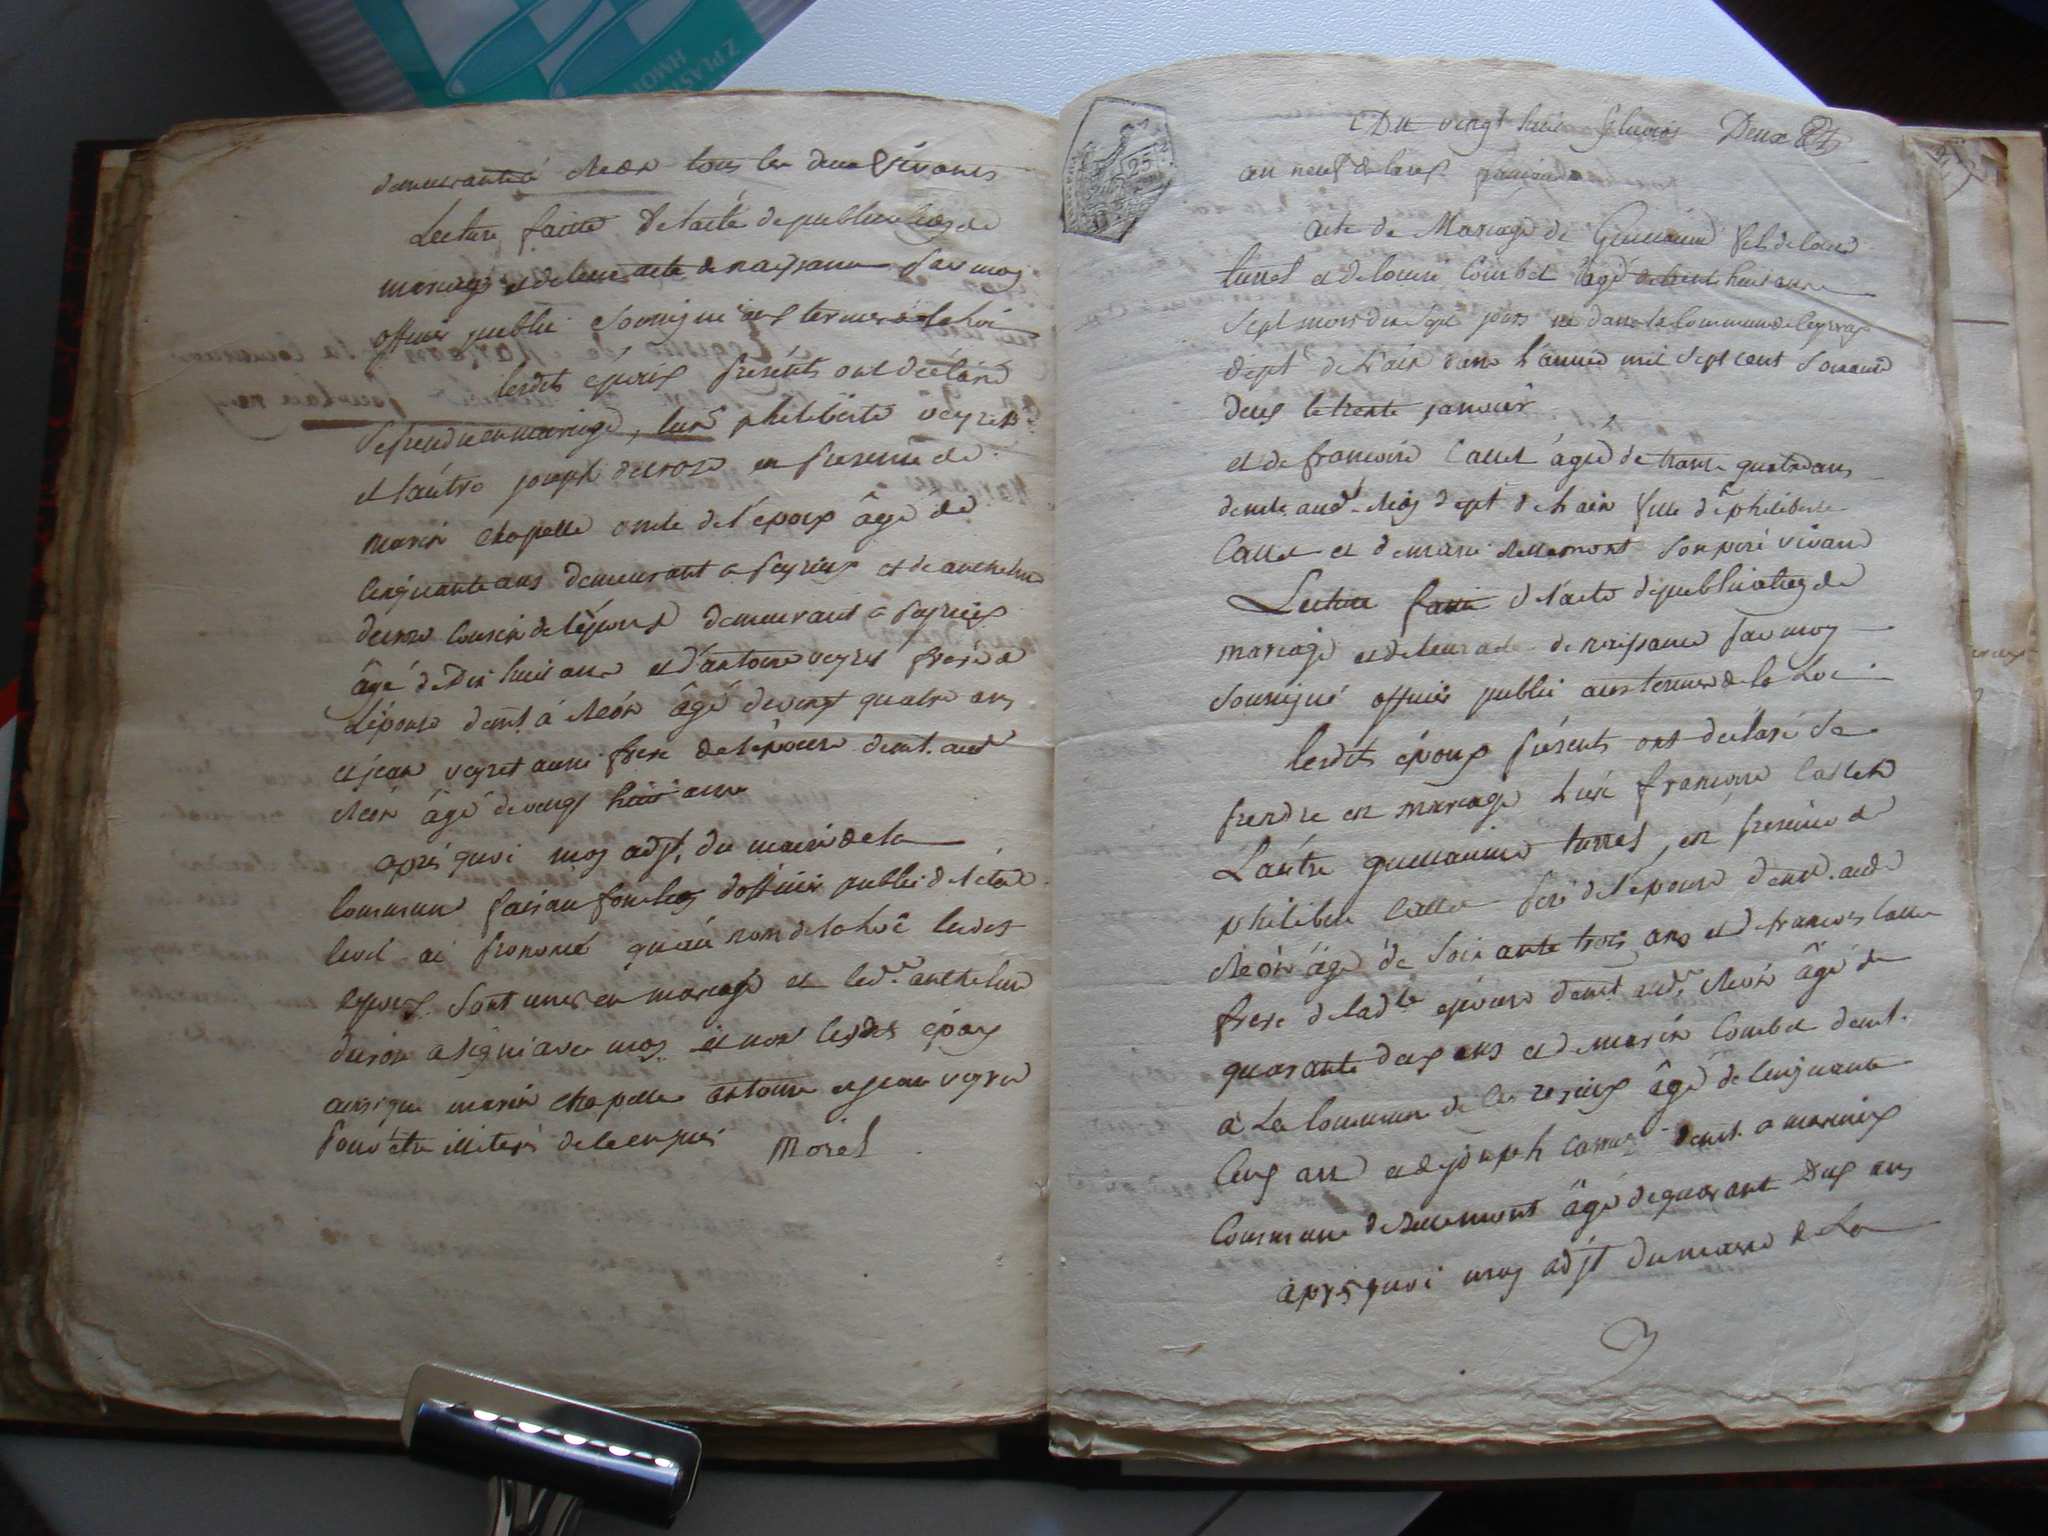 Z PLAS
HMO
demeurante à Cleon tous les deux vivants
Lecture faitte de l'acte de publication de
mariage et de leur acte de naissance par moy
officier public soussigné aux termes de la Loi
lesdits époux présents ont déclaré
se prendre en mariage, l'un philiberte veyret
et l'autre joseph en présence de
marin chapelle oncle de l'époux âgé de
cinquante ans demeurant a peyrieux et de anthelme
cousin de l'époux demeurant a peyrieux
âgé de Dix huit ans et d'antoine veyret frère de
l'épouse demt. à Cleon âgé de vingt quatre ans
et jean veyret aussi frere de l'épouse demt. aud
Cleon âgé de vingt huit ans
après quoi moy adjt. du maire de la
commune faisant fonction d'officier public de l'état
civil ai prononcé qu'au nom de la Loi lesdits
époux sont unis en mariage et led. anthelme
a signé avec moy et non lesdits époux
ainsi que marin chapelle antoine et jean veyret
pour être illiterés de ce enquis Morel
Du vingt huit pluviôs Deux
an neuf de la rep
acte de Mariage de Guillaume fils de
turrel et de louise Combet âgé de trente huit ans
sept mois dix sept jours né dans la Commune de
dept de l'ain dans l'année mil sept cent soixante
deux le trente janvier
et de francoise Callet âgée de trante quatre ans
demte. aud. Cleon dept de l'ain fille de philiberte
Callet et de marie son père vivand
Lecture faite de l'acte de publication de
mariage et de leur acte de naissance par moy
soussigné officier public aux termes de la Loi
lesdits époux présents ont déclaré se
prendre en mariage l'une francoise Callet
L'autre guillaume turrel, en présence de
philibert Callet père de l'epouse demt. aud
Cleon âgé de soixante trois ans et de francois Callet
frere de lad.te epouse demt aud. Cleon âgé de
quarante deux ans et de marin Combet demt.
a La Commune de âgé de cinquante
cinq ans et de joseph demt. a marnieux
Commune de âgé de quarant Deux ans
après quoi moy adjt du maire de La